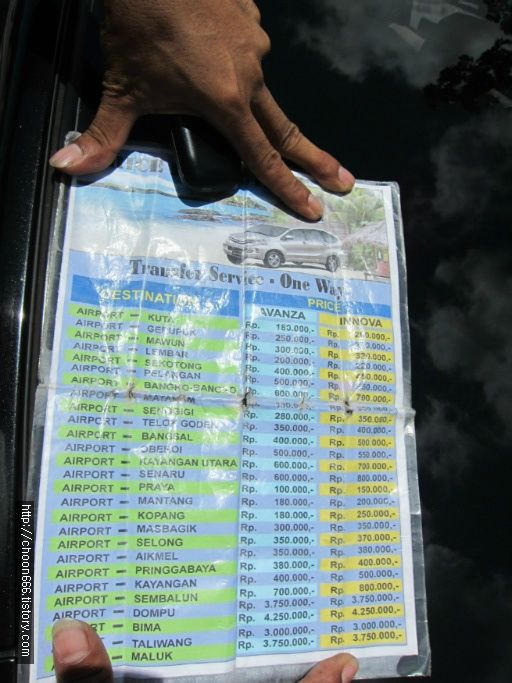 Transfer Service - One Way
DESTINATION PRICE
AVANZA INNOVA
AIRPORT – KUTA Rp. 180.000,- Rp.
AIRPORT – GERUPUK Rp. 250.000,- Rp.
AIRPORT – MAWUN Rp. 300.000,- Rp. 320.000,-
AIRPORT – LEMBAR Rp. 200.000,- Rp. 220.000,-
AIRPORT – SEKOTONG Rp. 400.000,- Rp.
AIRPORT – PELANGAN Rp. 500.000,- Rp.
AIRPORT – BANGKO-BANGKO Rp. 600.000,- Rp. 700.000,-
AIRPORT – MATARAM Rp. Rp.
AIRPORT – SENGGIGI Rp. 280.000,- Rp. 350.000,-
AIRPORT – TELOK Rp. 350.000,- Rp. 400.000,-
AIRPORT – BANGSAL Rp. 400.000,- Rp. 500.000,-
AIRPORT – OBEROI Rp. 500.000,- Rp. 550.000,-
AIRPORT – KAYANGAN UTARA Rp. 600.000,- Rp. 700.000,-
AIRPORT – SENARU Rp. 600.000,- Rp. 800.000,-
AIRPORT – PRAYA Rp. 100.000,- Rp. 150.000,-
AIRPORT – MANTANG Rp. 180.000,- Rp. 200.000,-
AIRPORT – KOPANG Rp. 180.000,- Rp. 250.000,-
AIRPORT – MASBAGIK Rp. 300.000,- Rp. 350.000,-
AIRPORT – SELONG Rp. 350.000,- Rp. 370.000,-
AIRPORT – AIKMEL Rp. 350.000,- Rp. 380.000,-
AIRPORT – PRINGGABAYA Rp. 380.000,- Rp. 400.000,-
AIRPORT – KAYANGAN Rp. 400.000,- Rp. 500.000,-
AIRPORT – SEMBALUN Rp. 700.000,- Rp. 800.000,-
AIRPORT – DOMPU Rp. 3.750.000,- Rp. 3.750.000,-
AIRPORT – BIMA Rp. 4.250.000,- Rp. 4.250.000,-
AIRPORT – TALIWANG Rp. 3.000.000,- Rp. 3.000.000,-
AIRPORT – MALUK Rp. 3.750.000,- Rp. 3.750.000,-
http://choon666.tistory.com